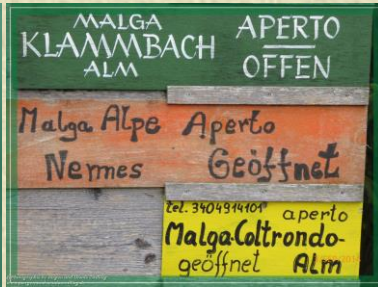 MALGA
KLAMMBACH
ALM
APERTO
OFFEN
Malga Alpe Aperto
Nemes Geöffnet
tel. 3404914101 aperto
Malga Coltrondo-
geöffnet Alm